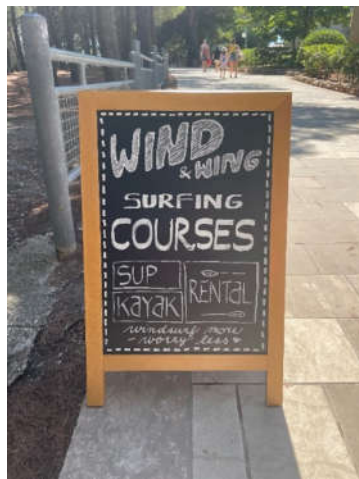 WIND
& WING
SURFING
COURSES
SUP
KAYAK
RENTAL
windsurf more
- worry less